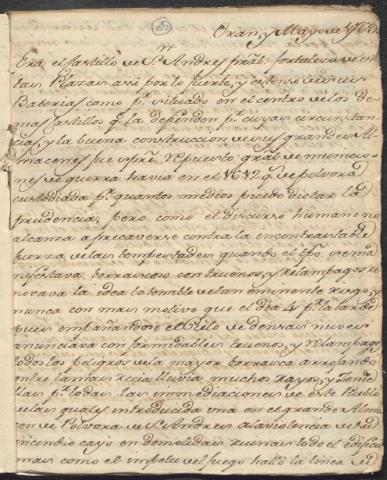 Oran, y Mayo de 1769
Era el Castillo de Sn. Andres pral. fortaleza de es
tas Plazas assi por lo fuerte, y estenso de sus
Baterias como pr. situado en el centro de los de
mas Castillos qe. la defienden pr. cuyas circunstan
cias, y la buena construccion de sus grandes Al
macenes fue spre. repuesto gral. de municio
nes de guerra havia en el de polvora
custodiada pr. quantos medios puede dictar la
prudencia; pero como el discurso humano no
alcanza a precaverse contra la incontrastable
fuerza de las tempestades quando el tpo. se ma
nifestava borrascoso con truenos, y Relampagos re
novava la idea lo temible de tan eminente riesgo, y
nunca con mas motivo que el dia 4 pr. la tarde
pues empañandose el Cielo de densas nuves
anunciava con formidables truenos, y relampag.
todos los peligros de la mayor borrasca arrojando
entre la mas recia lluvia muchos rayos, y
las pr. todas las immediaciones de este Pueblo
de las quales introducida una en el grande Alma
cen de Polvora de Sn. Andres a la violencia de su
incendio cayo en demolidas ruinas todo el edificio
mas como el impetu del fuego halló la